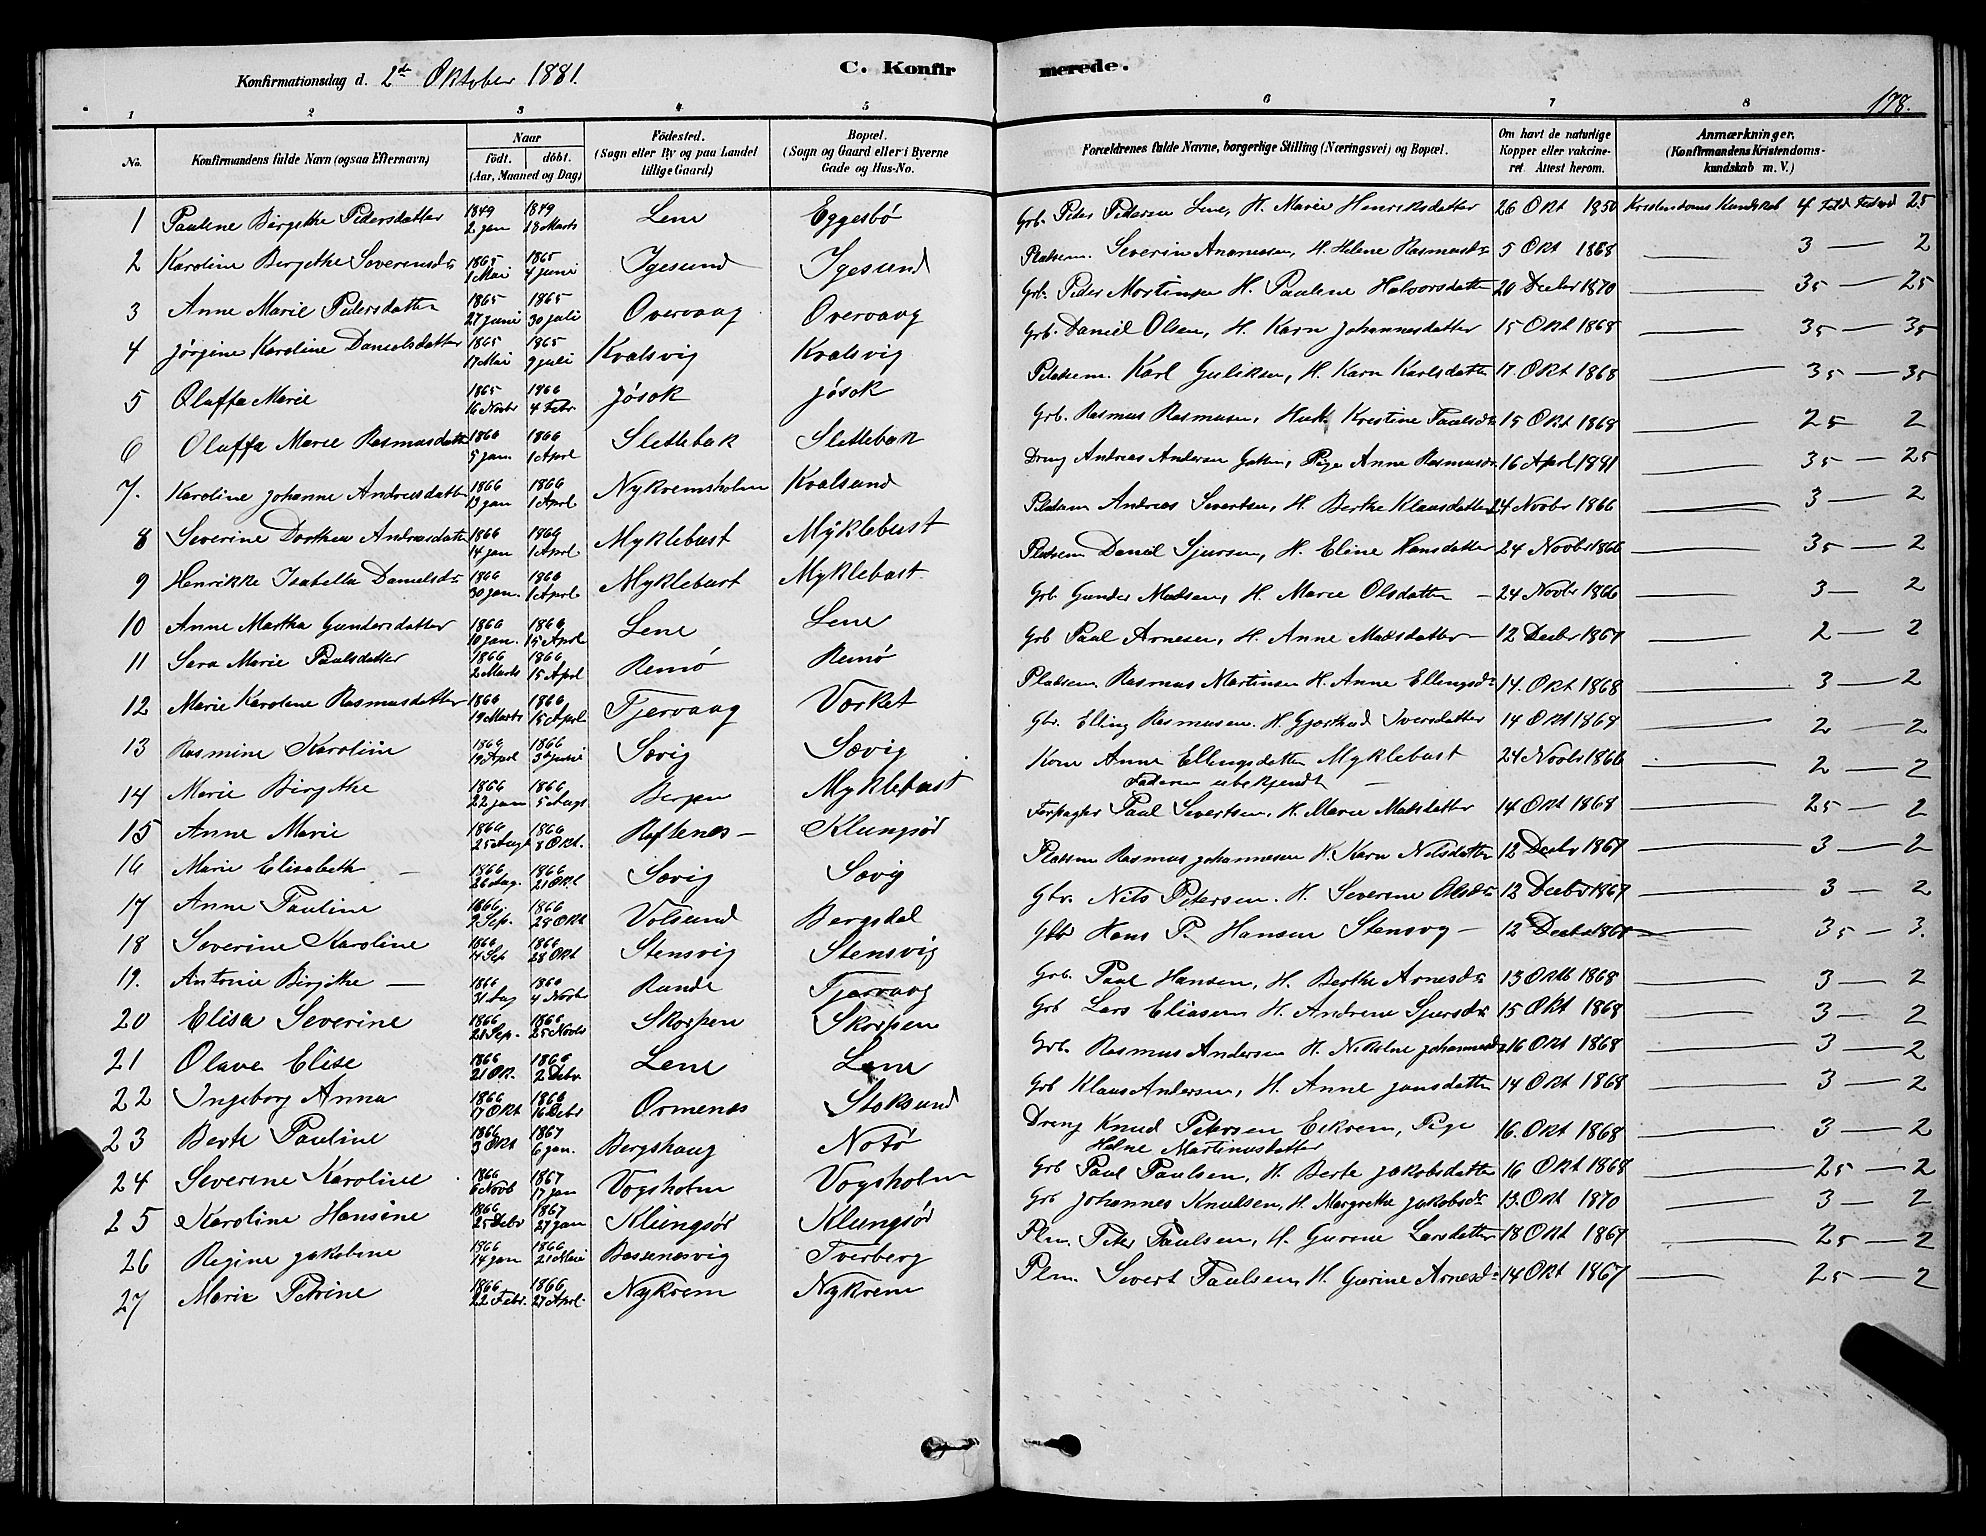 Konfirmationsdag d. 2de Oktober 1881. C. Konfir merede. 178.
1 2 3 4 5 6 7 8
No. Konfirmandens fulde Navn (ogsaa Efternavn) Naar födt. döbt. (Aar, Maaned og Dag) Födested. (Sogn eller By og paa Landet tillige Gaard) Bopæl. (Sogn og Gaard eller i Byerne Gade og Hus-No. Forældrenes fulde Navne, borgerlige Stilling (Næringsvei) og Bopæl. Om havt de naturlige Kopper eller vakcineret. Attest herom. Anmærkninger. (Konfirmandens Kristendomskundskab m. V.)
1 Pauline Birgithe Pedersdatter 1849 2 Jan 1849 18 Marts Lene Eggesbö Grb. Peder Pedersen Lene, H. Marie Henriksdatter 26 Okt 1850 Kristendoms Kundskab 4 25
2 Karoline Bergithe Severinsd: 1865 1 Mai 1865 4 Juni Igesund Igesund Pladsm. Severin Ananiesen, H. Helene Rasmusd: 5 Okt 1868 3 — 2
3 Anne Marie Pedersdatter 1865 27 Juni 1865 30 Juli Overvaag Overvaag Grb. Peder Mortinsen H. Pauline Halvorsdatter 20 Decbr 1870 35 — 25
4 Jörgine Karoline Danielsdatter 1865 17 Mai 1865 9 Juli Kvalsvig Kvalsvig Grb. Daniel Olsen, H. Karn Johannesdatter 15 Okt 1868 35 — 35
5 Oluffa Marie 1865 16 Novbr 1866 4 Febr Jösok Jösok Pladsem. Karl Guliksen, H. Karn Karlsdatter 17 Okt 1868 35 — 35
6 Oluffa Marie Rasmusdatter 1866 5 Jan. 1866 1 April Slettebak Slettebak Grb. Rasmus Rasmusen, Hust. Kristine Paulsd: 15 Okt 1868 25 2
7. Karoline Johanne Andreasdatter 1866 13 Jan 1866 1 April Nykremsholm Kvalsund Dreng Andreas Andersen, Pige Anne Rasmusd: 16 April 1881 35 — 25
8 Severine Dorthea Andreasdatter 1866 14 Jan 1866 1 April Myklebust Myklebust Pladsm Andreas Severtsen, H. Berthe Klausdatter 24 Novbr 1866 3 — 2
9 Henrikke Isabella Danielsd: 1866 30 Jan. 1866 1 April Myklebust Myklebust. Pladsem Daniel Sjursen, H. Eline Hansdatter 24 Novbr 1866 35 — 2
10 Anne Martha Gundersdatter 1866 10 Jan. 1866 15 April Lene Lene Grb. Gunder Madsen, H. Marie Olsdatter — 24 Novbr 1866 3 — 2
11 Sara Marie Paulsdatter 1866 2 Marts 1866 15 April Remö Remö Grb Paul Arnesen, H. Anne Madsdatter — 12 Decbr 1867 2 — 2
12 Marie Karolene Rasmusdatter 1866 19 Marts 1866 15 April Tjervaag Vorket Pladsem. Rasmus Martinsen H. Anne Ellingsd: 14. Okt 1868 3 — 2
13 Rasmine Karoline 1866 19 April 1866 3de Juni Sævig Sævig Gbr. Elling Rasmusen. H. Gjertrud Iversdatter 14 Okt 1868 2 — 2
14 Marie Birgithe 1866 22 Jan 1866 5 Augs Bergen Myklebust Kone Anne Ellingsdatter Myklebust 24 Novbr 1866 2 — 2
Faderen ubekjendt —
15 Anne Marie 1866 25 Aug 1866 8 Okt. Raftenes — Klungsör Forpagter Paul Severtsen, H. Marie Matsdatter 14 Okt 1868 25 — 2
16 Marie Elisabeth — 1866 26 Aug. 1866 21 Okt Sævig Sævig Pladsem Rasmus Johannesen H. Karn Nilsdatter 12 Decbr 1867 3 — 2
17 Anne Pauline 1866. 9 Sep. 1866 28 Okt Volsund Bergsdal Gbr. Nils Petersen. H. Severine Olsd: 12 Decbr 1867 3 — 2
18 Severine Karoline 1866 4 Sep 1866 28 Okt Stensvig Stensvig Gbr Hans P. Hansen Stensvg — 12 Decbr 1868 35 — 3.
19. Antonie Birgithe — 1866 31 Aug 1866 4 Novbr Runde Tjervaag Grb. Paul Hansen, H. Berthe Arnesd: 13 Okt 1868 3 — 2
20 Elisa Severine 1866 28 Sep. 1866 25 Novbr Skorpen Skorpen Grb Lars Eliasen H. Andrene Sjursd: 15 Okt 1868 3 — 2
21 Olave Elise 1866 21 Ok. 1866 2 Debr Lene Lene Grb. Rasmus Andersen H. Nikoline Johannesd: 16 Okt 1868 3 — 2
22 Ingeborg Anna 1866 17 Okt 1866 16 Debr Ormenes Stoksund Grb Klaus Andersen, H. Anne Jansdatter 14 Okt 1868 3 — 2
23 Berte Pauline 1866 3 Okt 1867 6 Jan. Bergshaug Notö Dreng Knud Petersen Eikrem, Pige 16. Okt 1868 3 — 2
Helne Martinusdatter
24 Severine Karoline 1866 6 Novb 1867 17 Jan Vogsholm Vogsholm Grb Paul Paulsen, H. Berte Jakobsdatter 16 Okt 1868 25 — 2
25 Karoline Hansine 1866 25 Debr 1867 27 Jan Klungsör Klungsör Grb Johannes Knutsen, H. Margrethe Jakobsd: 13. Okt 1870 3 — 2
26 Regine Jakobine 1866 14 Jan 1866 21 Mai Bossenesvig Tverberg Plm. Peter Paulsen, H. Gurine Larsdatter 18 Okt 1867 25 — 2
27 Marie Petrine 1866 22 Febr. 1866 27 April. Nykrem Nykrem Plm. Severt Paulsen, H. Gurine Arnesd: 14 Okt 1867 25 — 2